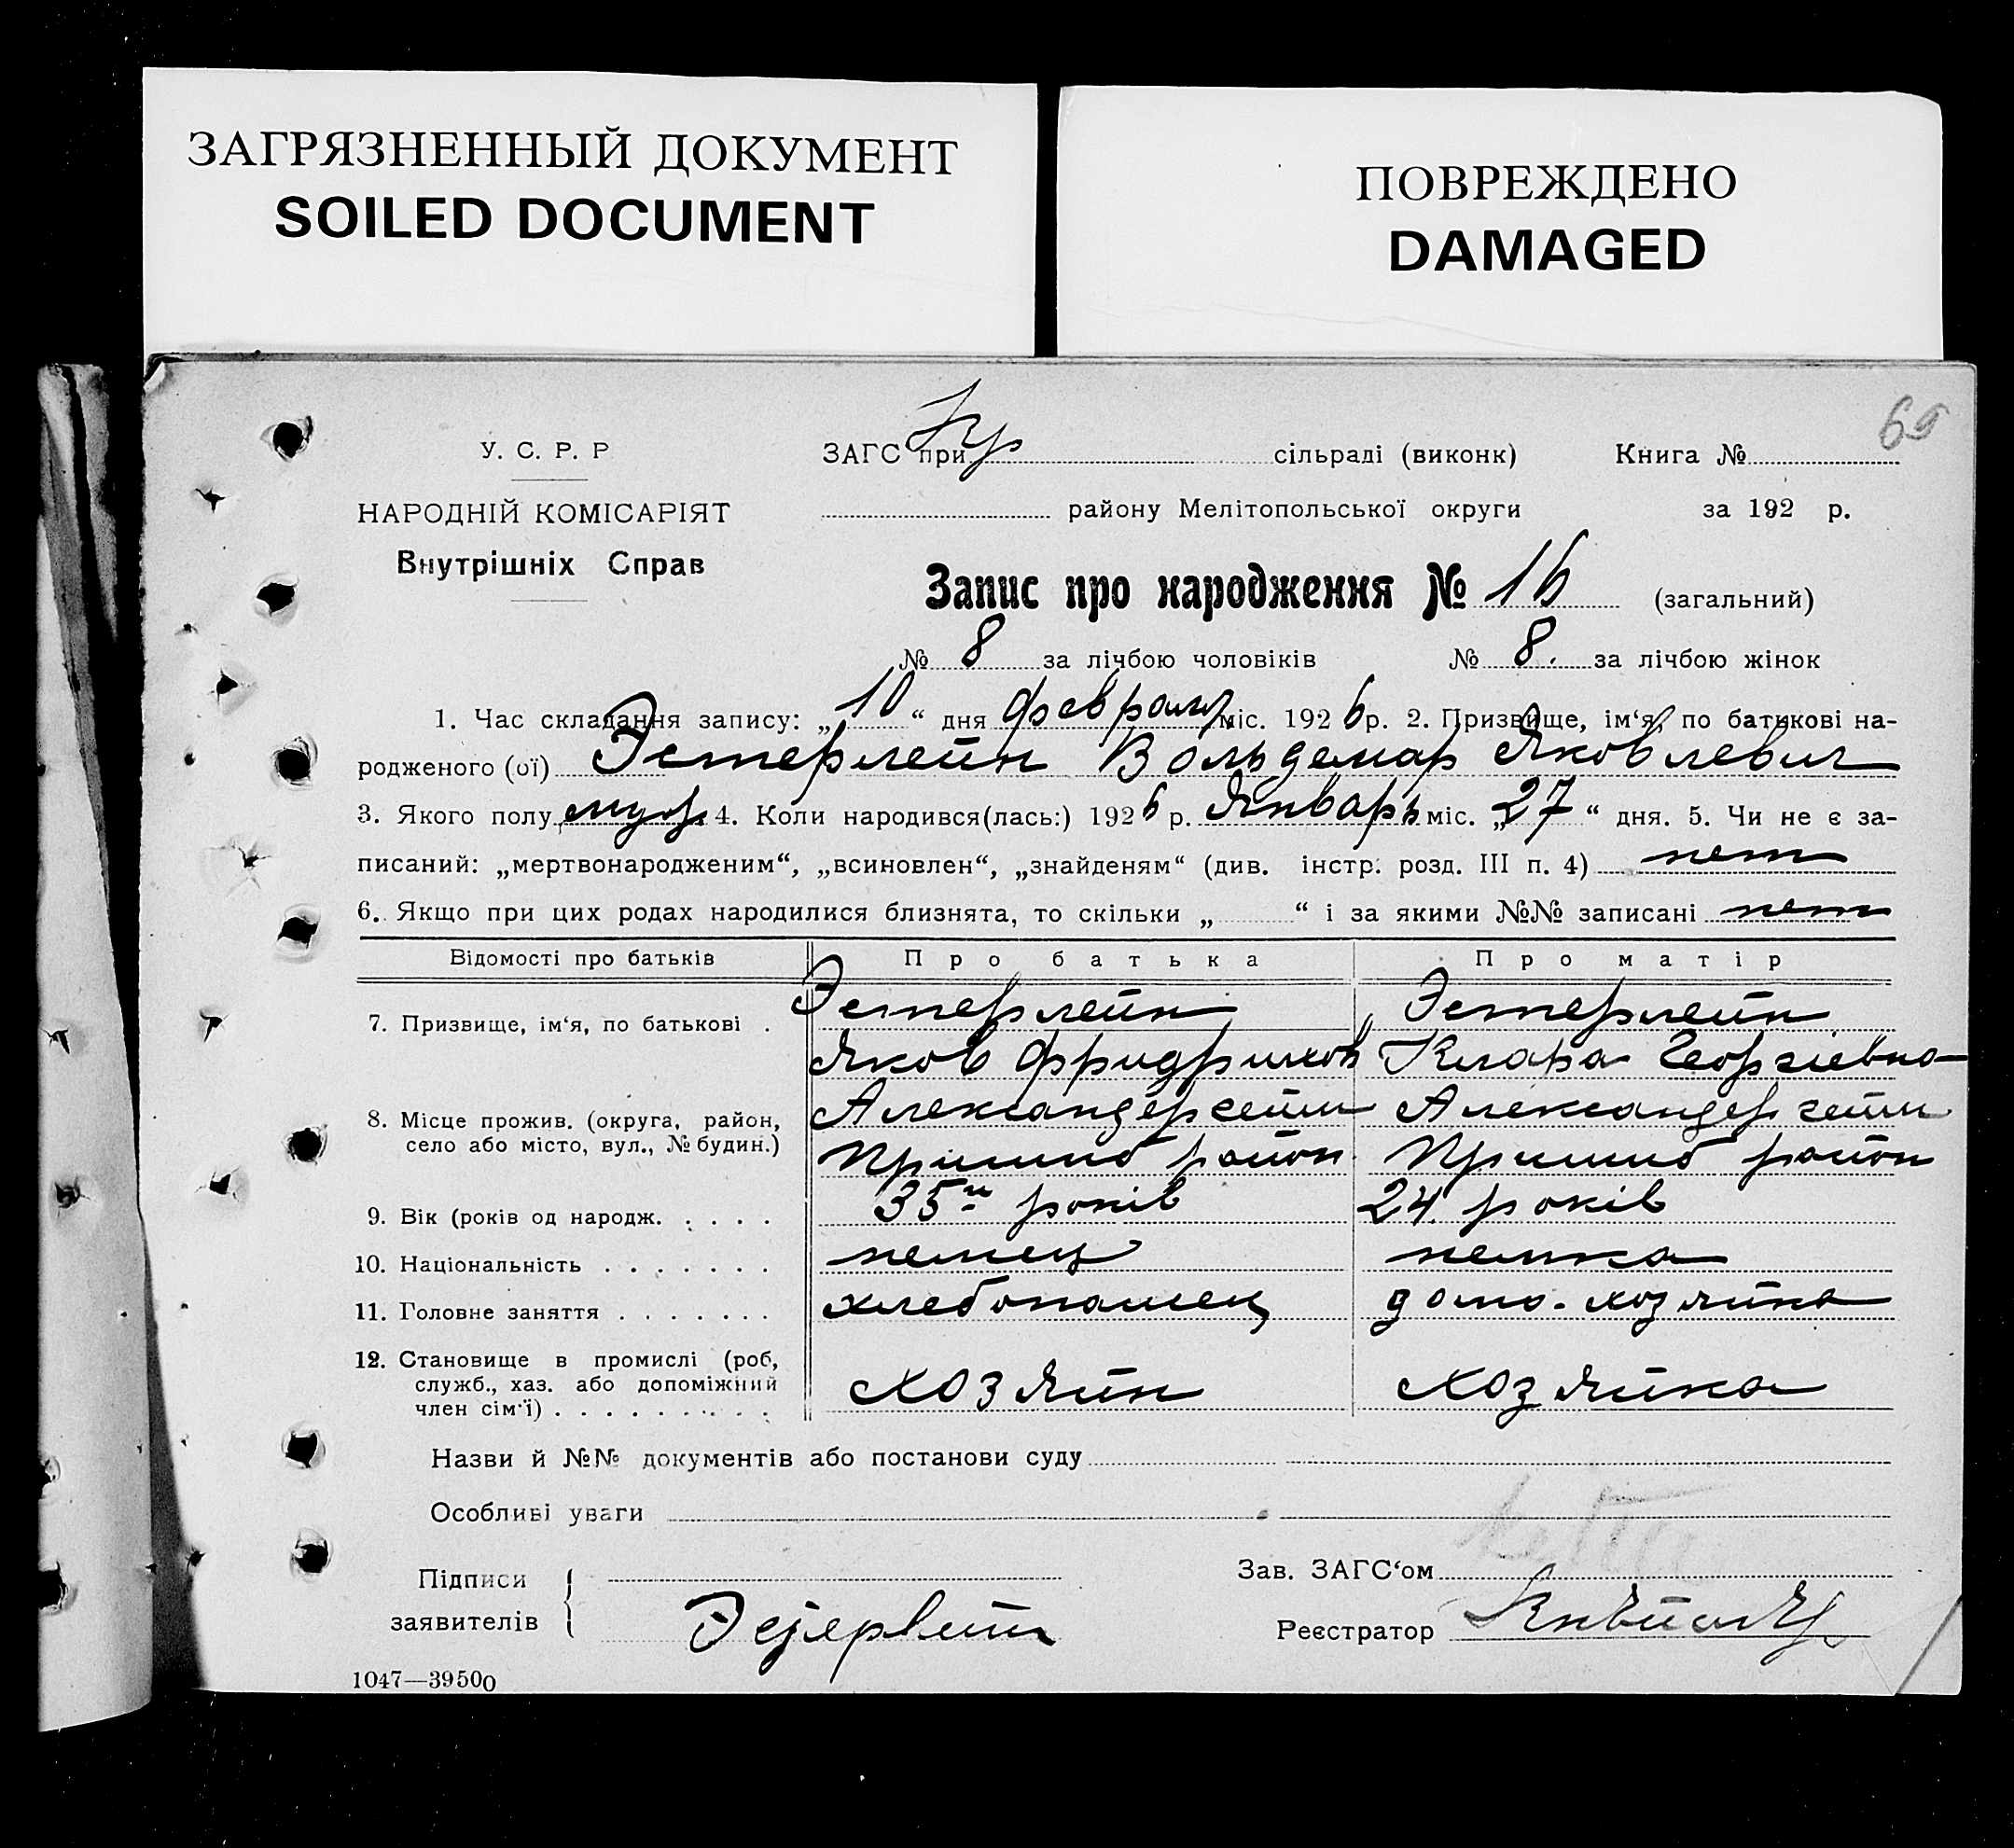 ЗАГРЯЗНЕННЫЙ ДОКУМЕНТ
SOILED DOCUMENT
ПОВРЕЖДЕНО
DAMAGED
69
У. С. Р. Р
НАРОДНІЙ КОМІСАРІЯТ
Внутрішніх Справ
ЗАГС при сільраді (виконк) Книга №
району Мелітопольської округи за 192 р.
Запис про народження № 16 (загальний)
№ 8 за лічбою чоловіків № 8. за лічбою жінок
1. Час складання запису: „10“ дня февраля міс. 1926 р. 2. Призвище, ім‘я, по батькові на-
родженого (ої) Эстерлейн Вольдемар Яковлевич
3. Якого полу муж. 4. Коли народився(лась:) 1926 р. Январь міс. „27“ дня. 5. Чи не є за-
писаний: „мертвонародженим“, „всиновлен“, „знайденям“ (див. інстр. розд. III п. 4) нет
6. Якщо при цих родах народилися близнята, то скільки „ “ і за якими №№ записані нет
Відомості про батьків Про батька Про матір
7. Призвище, ім‘я, по батькові . Эстерлейн Эстерлейн
Яков Фридрихов Клара Георгіевна
8. Місце прожив. (округа, район, Александергейм Александергейм
село або місто, вул., № будин.) Пришиб район Пришиб район
9. Вік (років од народж. . . . . 35 років 24 років
10. Національність . . . . . . . немец немка
11. Головне заняття . . . . . . . хлебопашец домо-хозяйка
12. Становище в промислі (роб,
служб., хаз. або допоміжний хозяйн хозяйка
член сім‘ї) . . . . . . . . . .
Назви й №№ документів або постанови суду
Особливі уваги
Підписи Зав. ЗАГС‘ом
заявителів Реєстратор
1047—39500